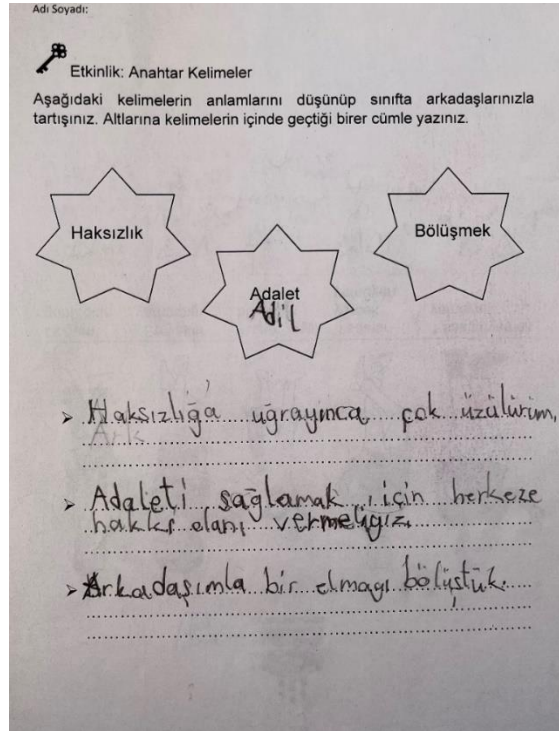 Adı Soyadı:
Etkinlik: Anahtar Kelimeler
Aşağıdaki kelimelerin anlamlarını düşünüp sınıfta arkadaşlarınızla
tartışınız. Altlarına kelimelerin içinde geçtiği birer cümle yazınız.
Haksızlık
Bölüşmek
Adalet
Adil
➢ Haksızlığa uğrayınca çok üzülürüm.
Ark
➢ Adaleti sağlamak için herkeze
hakkı olanı vermeliyiz.
➢ Arkadaşımla bir elmayı bölüştük.